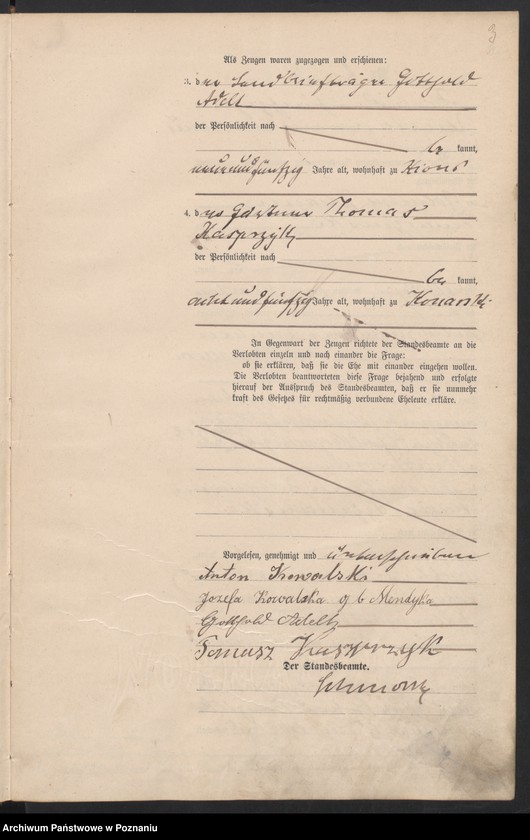 3
Als Zeugen waren zugezogen und erschienen:
3. der Landbriefträger Gotthold
Adelt
der Persönlichkeit nach
be kannt,
neunundfünfzig Jahre alt, wohnhaft zu Xions
4. der Gärtner Thomas
Kasprzyk
der Persönlichkeit nach
be kannt,
achtundfünfzig Jahre alt, wohnhaft zu Konarskie
In Gegenwart der Zeugen richtete der Standesbeamte an die
Verlobten einzeln und nach einander die Frage:
ob sie erklären, daß sie die Ehe mit einander eingehen wollen.
Die Verlobten beantworteten diese Frage bejahend und erfolgte
hierauf der Ausspruch des Standesbeamten, daß er sie nunmehr
kraft des Gesetzes für rechtmäßig verbundene Eheleute erkläre.
Vorgelesen, genehmigt und unterschrieben
Anton Kowalski
Jozefa Kowalska g b Mendyka
Gotthold Adelt
Tomasz Kasprzyk
Der Standesbeamte.
Archiwum Państwowe w Poznaniu